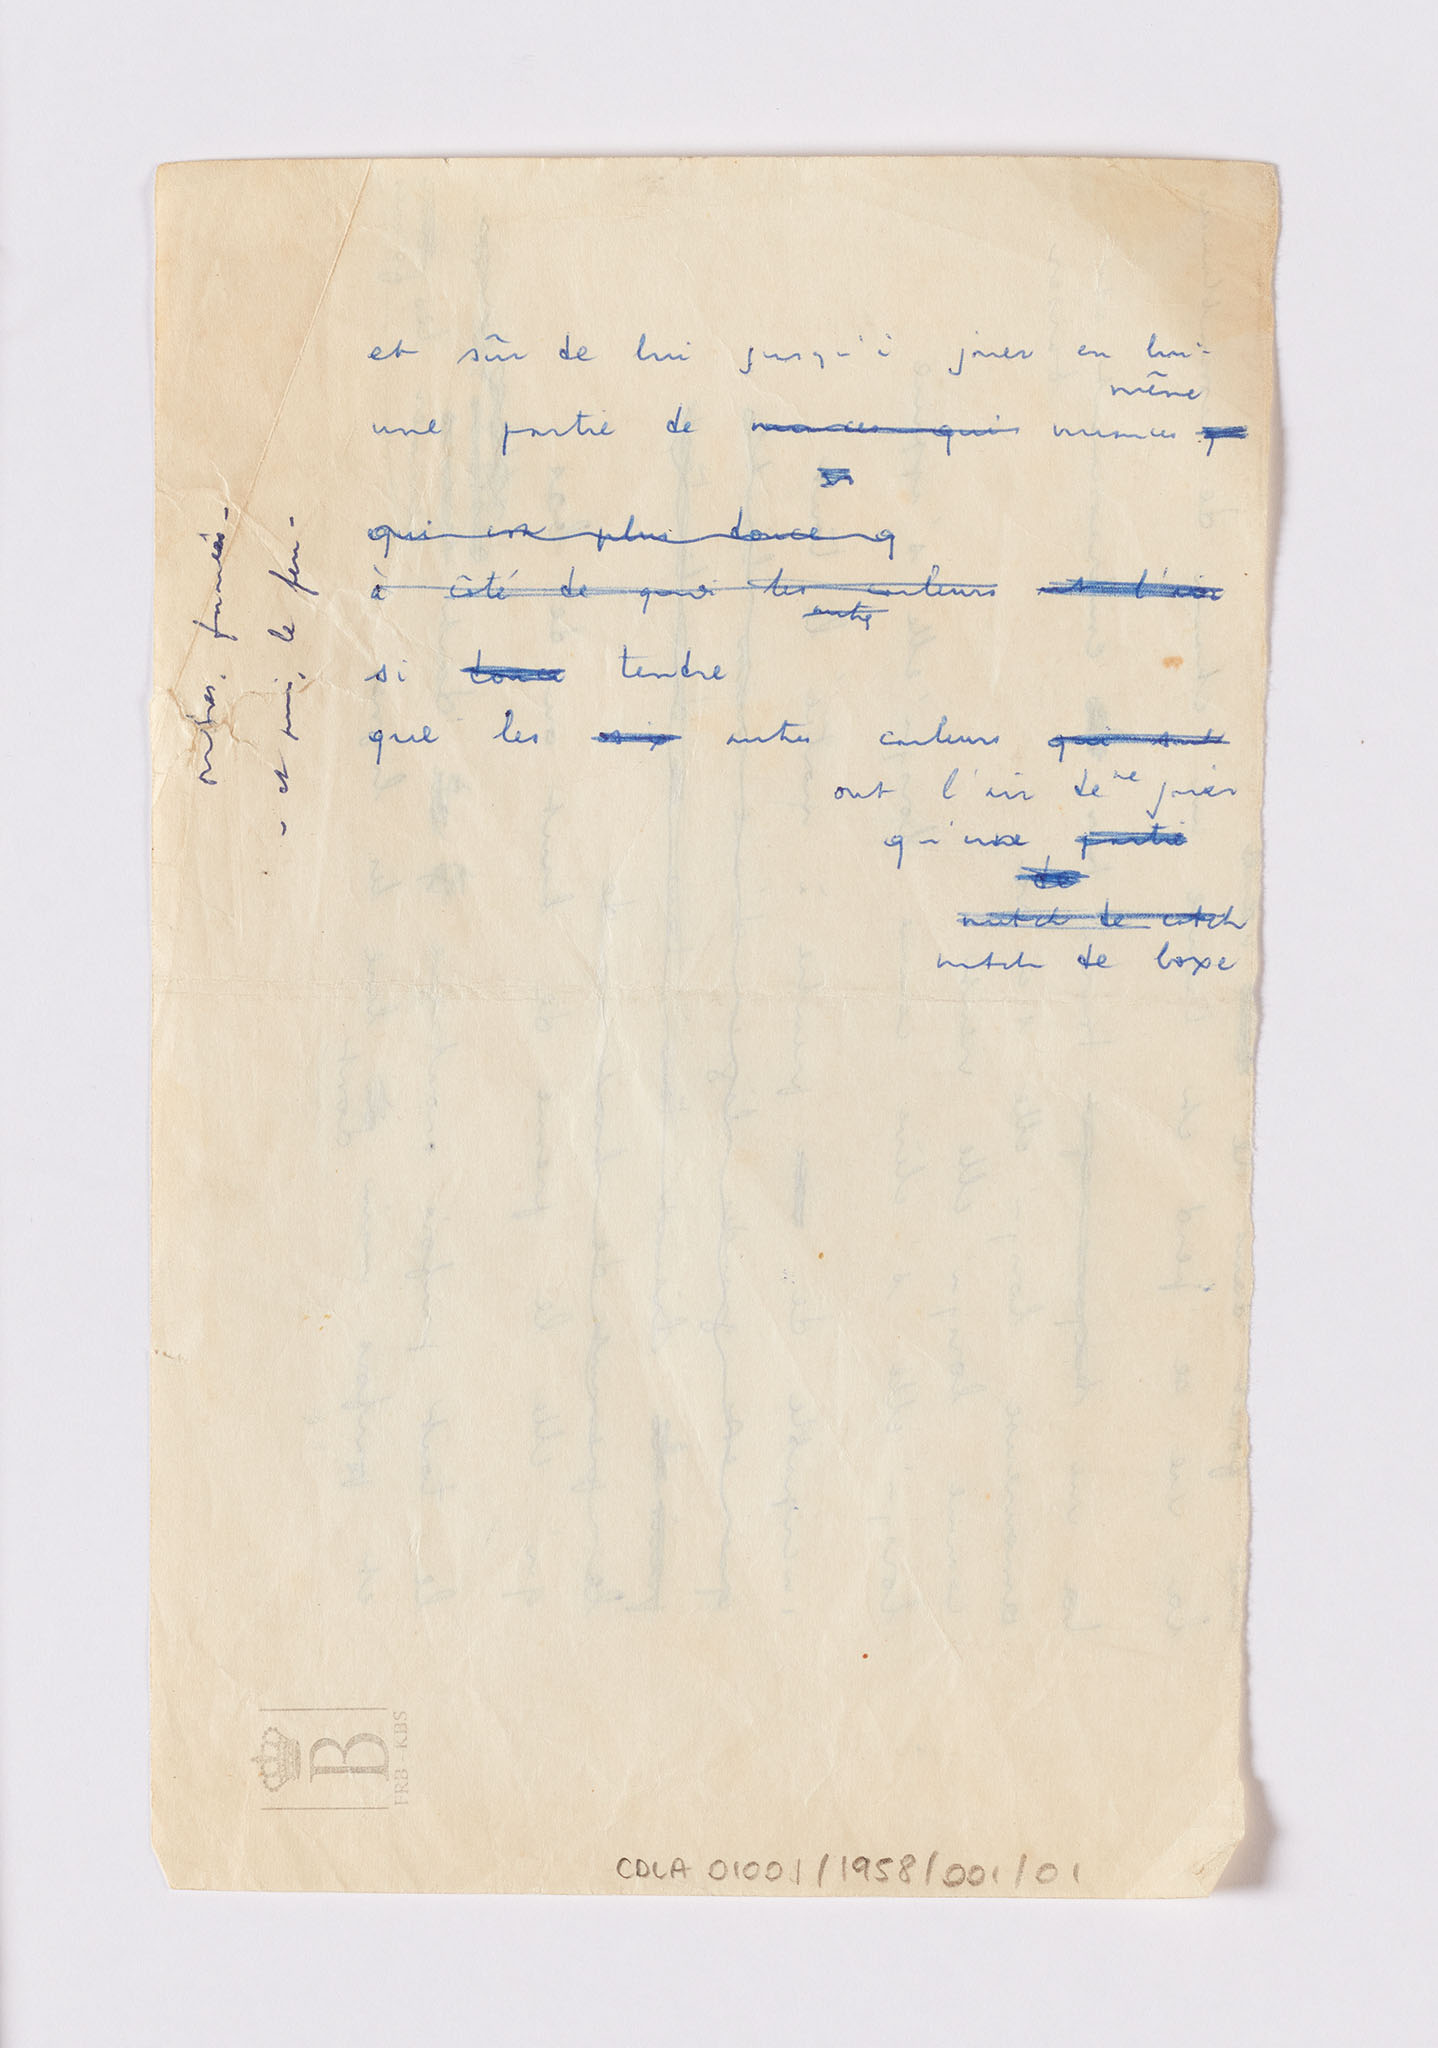 et sûr de lui jusqu'à jouer en lui-
même
une partie de nuances qui nuances q
qui est plus douce q
à côté de quoi les couleurs et l'air
autres
si douce tendre
que les six autres couleurs qui sont
ont l'air de ne jouer
qu'une partie
de
match de catch
match de boxe
outres. fumées -
- et puis, le feu -
B
FRB - KBS
CDLA 01001/1958/001/01